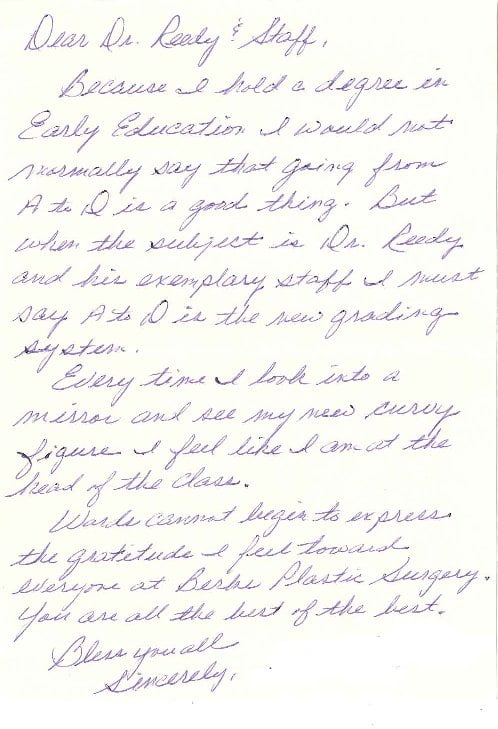 Dear Dr. Reedy & Staff,
Because I hold a degree in
Early Education I would not
normally say that going from
A to D is a good thing. But
when the subject is Dr. Reedy
and his exemplary staff I must
say A to D is the new grading
system.
Every time I look into a
mirror and see my new curvy
figure I feel like I am at the
head of the class.
Words cannot begin to express
the gratitude I feel toward
everyone at Berks Plastic Surgery.
You are all the best of the best.
Bless you all
Sincerely,